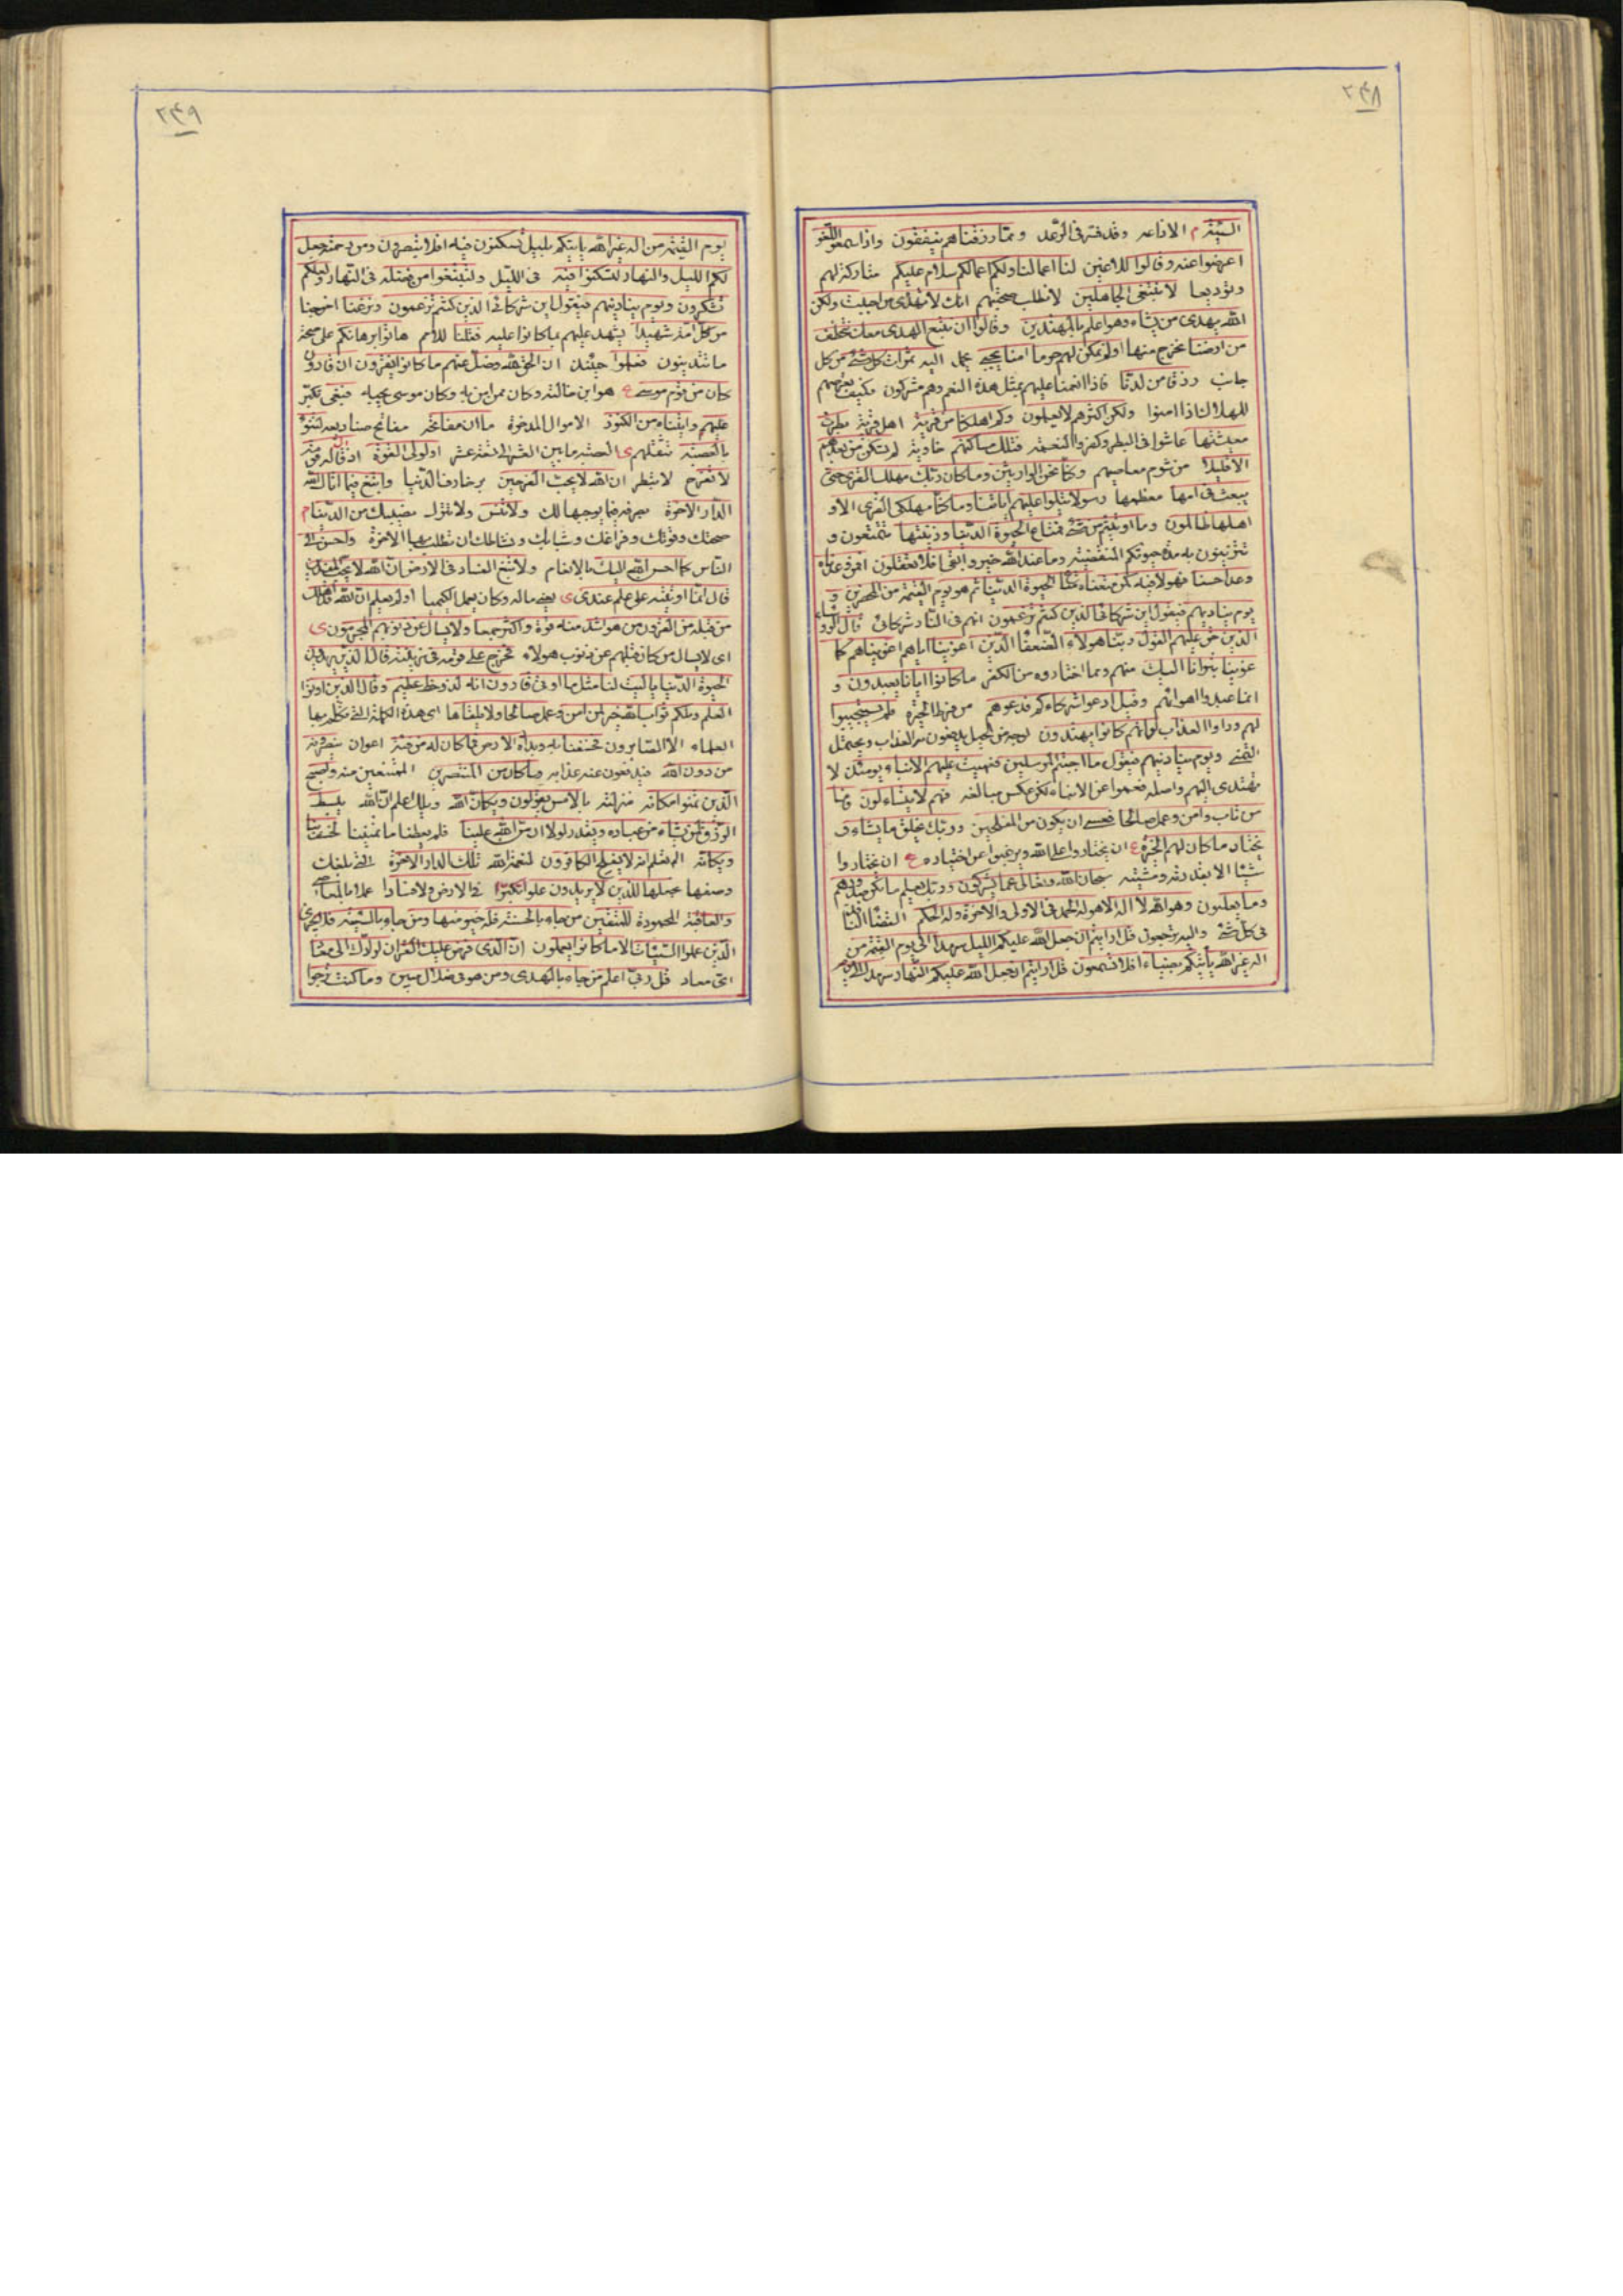 ٢٤٨
السيئة م الاذاعه وقد مر فى الرعد ومما رزقناهم ينفقون واذا سمعوا اللغو
اعرضوا عنه وقالوا للاغين لنا اعمالنا ولكم اعمالكم سلام عليكم متاركة لهم
وتوديعا لا نبتغى الجاهلين لا نطلب صحبتهم انك لا تهدى من احببت ولكن
الله يهدى من يشاء وهو اعلم بالمهتدين وقالوا ان نتبع الهدى معك نتخطف
من ارضنا نخرج منها اولم نمكن لهم حرما امنا يجبى يحمل اليه ثمرات كل شئ من كل
جانب رزقا من لدنا فاذا انعمنا عليهم بمثل هذه النعم وهم مشركون فكيف
اذا امنوا ولكن اكثرهم لا يعلمون وكم اهلكنا من قرية اهل قرية بطرت
معيشتها عاشوا فى البطر وكفروا النعمة فتلك مساكنهم خاوية لم تسكن من بعدهم
الا قليلا من شوم معاصيهم وكنا نحن الوارثين وما كان ربك مهلك القرى حتى
يبعث فى امها معظمها رسولا يتلوا عليهم اياتنا وما كنا مهلكى القرى الا و
اهلها ظالمون وما اوتيتم من شئ فمتاع الحيوة الدنيا وزينتها تتمتعون و
تتزينون به مدة حيوتكم المنقضية وما عند الله خير وابقى افلا تعقلون افمن وعدناه
وعدا حسنا فهو لاقيه كمن متعناه متاع الحيوة الدنيا ثم هو يوم القيمة من المحضرين و
يوم يناديهم فيقول اين شركائى الذين كنتم تزعمون انهم فى النار شركائى قال
الذين حق عليهم القول ربنا هولاء الضعفا الذين اغوينا اياهم اغويناهم كما
غوينا تبرانا اليك منهم ومما اختاروه من الكفر ما كانوا ايانا يعبدون و
انما عبدوا اهوائهم وقيل ادعوا شركاءكم فدعوهم من فرط الحيرة فلم يستجيبوا
لهم وراوا العذاب لو انهم كانوا يهتدون لوجه من الحيل يدفعون به العذاب ويحتمل
التمنى ويوم يناديهم فيقول ماذا اجبتم المرسلين فعميت عليهم الانباء يومئذ لا
تهتدى اليهم واصله فعموا عن الانباء لكن عكس مبالغة فهم لا يتساءلون فاما
من تاب وامن وعمل صالحا فعسى ان يكون من المفلحين وربك يخلق ما يشاء و
يختار ما كان لهم الخيرة ع ان يختاروا على الله ويرغبوا عن اختياره ع ان يختاروا
شيئا الا بقدرته ومشيته سبحان الله وتعالى عما يشركون وربك يعلم ما تكن صدورهم
وما يعلنون وهو الله لا اله الا هو له الحمد فى الاولى والاخرة وله الحكم القضاء النافذ
فى كل شئ واليه ترجعون قل ارايتم ان جعل الله عليكم الليل سرمدا الى يوم القيمة من
اله غير الله ياتيكم بضياء افلا تسمعون قل ارايتم ان جعل الله عليكم النهار سرمدا الى
٢٤٩
يوم القيمة من اله غير الله ياتيكم بليل تسكنون فيه افلا تبصرون ومن رحمته جعل
لكم الليل والنهار لتسكنوا فيه فى الليل ولتبتغوا من فضله فى النهار ولعلكم
تشكرون ويوم يناديهم فيقول اين شركائى الذين كنتم تزعمون ونزعنا اخرجنا
من كل امة شهيدا يشهد عليهم بما كانوا عليه فقلنا للامم هاتوا برهانكم على صحة
ما تتدينون فعلموا حينئذ ان الحق لله وضل عنهم ما كانوا يفترون ان قارون
كان من قوم موسى ع هو ابن خالته وكان ممن امن به وكان موسى يحبه فبغى تكبر
عليهم واتيناه من الكنوز الاموال المدخرة ما ان مفاتحه مفاتح صناديقه لتنوء
بالعصبة تثقلهم ى العصبة ما بين العشرة الى تسعة عشر اولوا القوة اذ قال له قومه
لا تفرح لا تبطر ان الله لا يحب الفرحين بزخارف الدنيا وابتغ فيما اتاك الله
الدار الاخرة بصرفه فيما يوجبها لك ولا تنس ولا تترك نصيبك من الدنيا م
صحتك وقوتك وفراغك وشبابك ونشاطك ان تطلب بها الاخرة واحسن الى
الناس كما احسن الله اليك بالانعام ولا تبغ الفساد فى الارض ان الله لا يحب المفسدين
قال انما اوتيته على علم عندى ى يعنى ماله وكان يعمل الكيميا اولم يعلم ان الله قد اهلك
من قبله من القرون من هو اشد منه قوة واكثر جمعا ولا يسال عن ذنوبهم المجرمون ى
اى لا يسال من كان قبلهم عن ذنوب هولاء فخرج على قومه فى زينته قال الذين يريدون
الحيوة الدنيا يا ليت لنا مثل ما اوتى قارون انه لذو حظ عظيم وقال الذين اوتوا
العلم ويلكم ثواب الله خير لمن امن وعمل صالحا ولا يلقاها اى هذه الكلمة التى تكلم بها
العلماء الا الصابرون فخسفنا به وبداره الارض فما كان له من فئة اعوان ينصرونه
من دون الله فيدفعون عنه عذابه وما كان من المنتصرين الممتنعين منه واصبح
الذين تمنوا مكانه منزلته بالامس يقولون ويكان الله ويلك اعلم ان الله يبسط
الرزق لمن يشاء من عباده ويقدر لولا ان من الله علينا فلم يعطنا ما تمنينا لخسف بنا
ويكانه الم تعلم انه لا يفلح الكافرون لنعمة الله تلك الدار الاخرة التى بلغك
وصفها نجعلها للذين لا يريدون علوا تكبرا فى الارض ولا فسادا عملا بالمعاصى
والعاقبة المحمودة للمتقين من جاء بالحسنة فله خير منها ومن جاء بالسيئة فلا يجزى
الذين عملوا السيئات الا ما كانوا يعملون ان الذى فرض عليك القران لرادك الى معاد
اى معاد قل ربى اعلم من جاء بالهدى ومن هو فى ضلال مبين وما كنت ترجوا